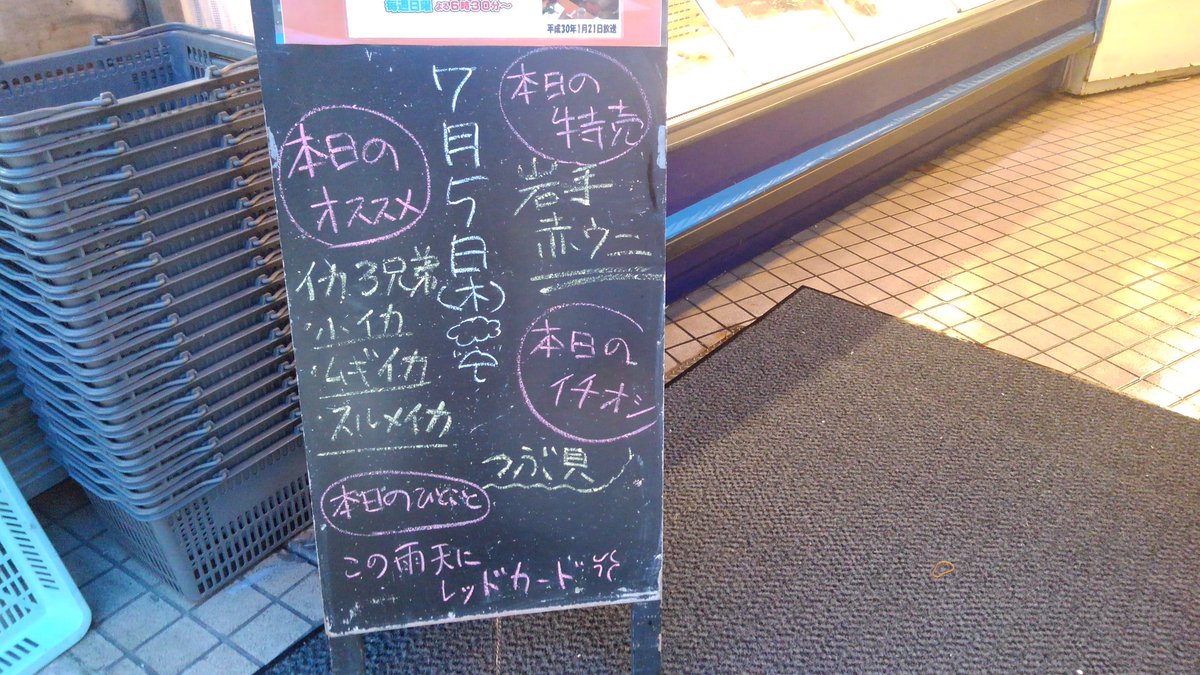 毎週日曜よる6時30分~
平成30年1月21日放送
本日の
特売
岩手
赤ウニ
本日の
イチオシ
つぶ貝
7月5日(木)
本日の
オススメ
イカ3兄弟
・小イカ
・ムギイカ
・スルメイカ
本日のひとこと
この雨天に
レッドカード